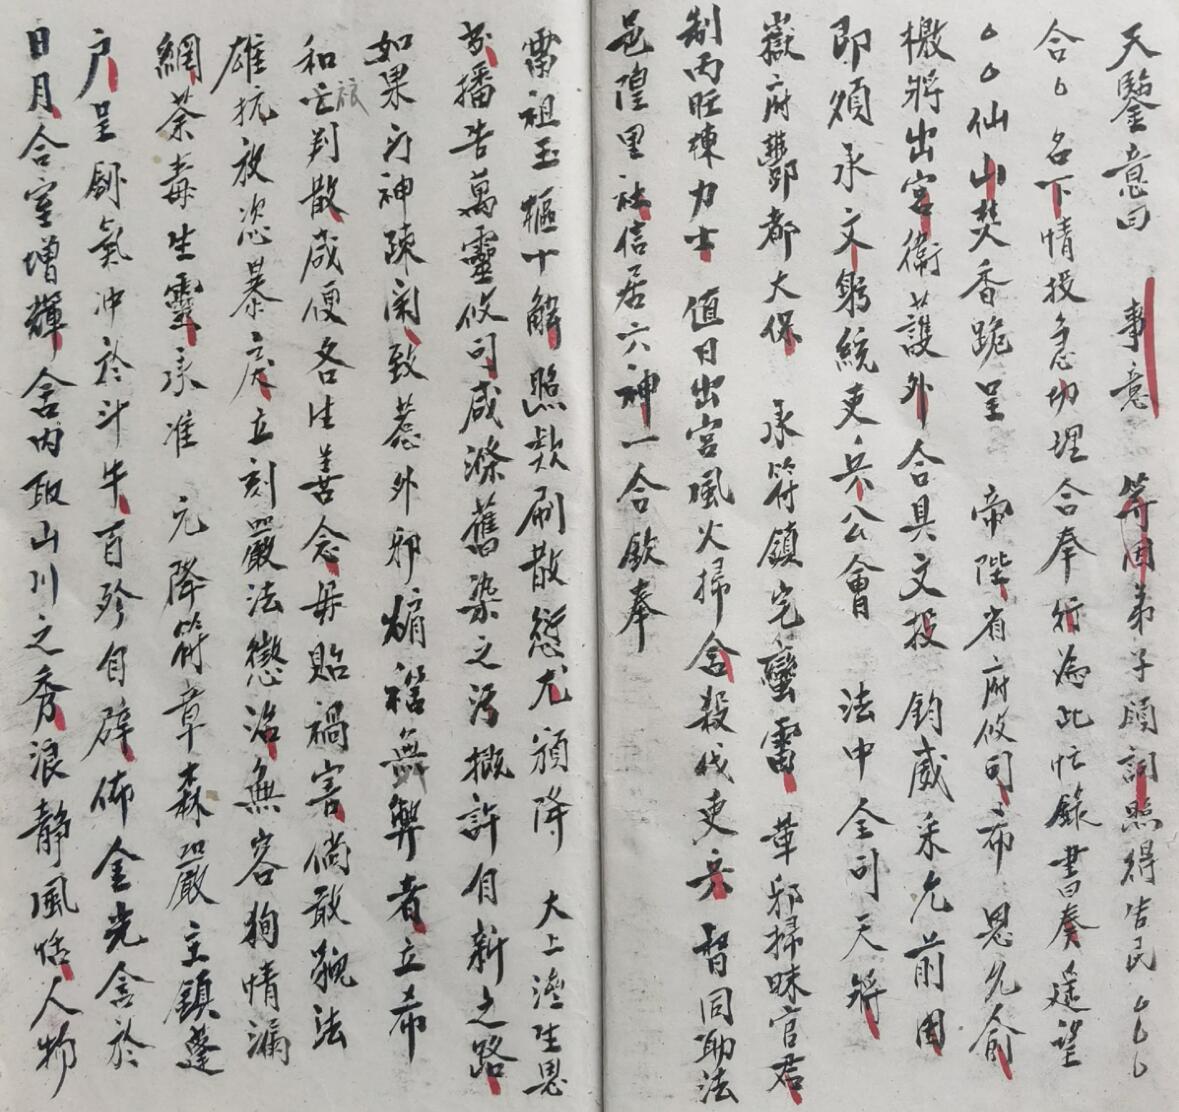 天鑒意曰 事意 等因弟子頭詞照得告民厶厶厶
合厶名下情投急切理合奉行為此忙錄書奏遥望
厶厶仙山焚香跪呈 帝陛省府攸司希 恩允俞
檄將出宮衛護外合具文投 鈞威采允前因
即須承文躬統吏兵公會 法中全司天將
嶽府酆都大保 承符鎮宅蠻雷 革邪掃昧官君
制丙旺楝力士 值日出宮風火掃舍殺伐吏兵 督同助法
邑隍里社信居六神一合欽奉
雷祖玉樞十解照款刷散愆尤頒降 大上濟生恩
播告萬靈攸司咸滌舊染之污概許自新之路
如果方神疎闲致惹外邪煽禍無弊者立希
和忘旅判散咸便各生善念毋貽禍害倘敢藐法
雄抗放恣暴戾立刻嚴法懲治無容狥情漏
網荼毒生靈承准 元降符章森嚴主鎮蓬
户呈劍氣冲於斗牛百殄自辟佈金光含於
日月合室增輝舍内取山川之秀浪静風恬人物